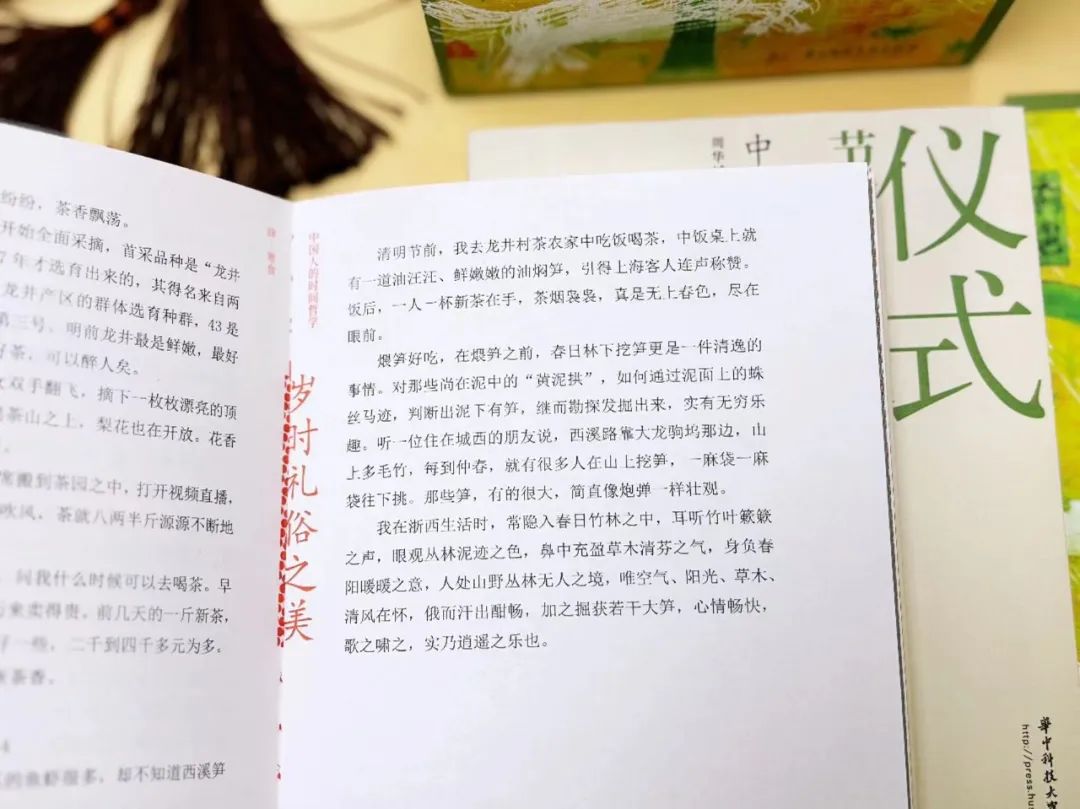 纷纷，茶香飘荡。
开始全面采摘，首采品种是“龙井
7 年才选育出来的，其得名来自两
龙井产区的群体选育种群，43 是
第三号。明前龙井最是鲜嫩，最好
好茶，可以醉人矣。
女双手翻飞，摘下一枚枚漂亮的顶
茶山之上，梨花也在开放。花香
常搬到茶园之中，打开视频直播，
吹风。茶就八两半斤源源不断地
问我什么时候可以去喝茶。早
卖得贵。前几天的一斤新茶，
一些，二千到四千多元为多。
茶香。
4
的鱼虾很多，却不知道西溪笋
中国人的时间哲学
岁时礼俗之美
清明节前，我去龙井村茶农家中吃饭喝茶，中饭桌上就
有一道油汪汪、鲜嫩嫩的油焖笋，引得上海客人连声称赞。
饭后，一人一杯新茶在手，茶烟袅袅，真是无上春色，尽在
眼前。
煨笋好吃，在煨笋之前，春日林下挖笋更是一件清逸的
事情。对那些尚在泥中的“黄泥拱”，如何通过泥面上的蛛
丝马迹，判断出泥下有笋，继而勘探发掘出来，实有无穷乐
趣。听一位住在城西的朋友说，西溪路靠大龙驹坞那边，山
上多毛竹，每到仲春，就有很多人在山上挖笋，一麻袋一麻
袋往下挑。那些笋，有的很大，简直像炮弹一样壮观。
我在浙西生活时，常隐入春日竹林之中，耳听竹叶簌簌
之声，眼观丛林泥迹之色，鼻中充盈草木清芬之气，身负春
阳暖暖之意，人处山野丛林无人之境，唯空气、阳光、草木、
清风在怀，俄而汗出酣畅，加之掘获若干大笋，心情畅快，
歌之啸之，实乃逍遥之乐也。
仪式
节
中
周华
華中科技大
http://press.hu